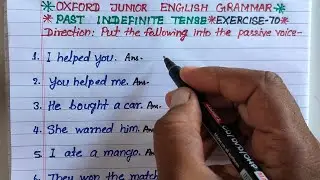 *OXFORD JUNIOR ENGLISH GRAMMAR*
*PAST INDEFINITE TENSE *EXERCISE-70*
Direction: Put the following into the passive voice-
1. I helped you. Ans-
2. You helped me. Ans-
3. He bought a car. Ans-
4. She warned him. Ans-
5. I ate a mango. Ans-
6. They won the match